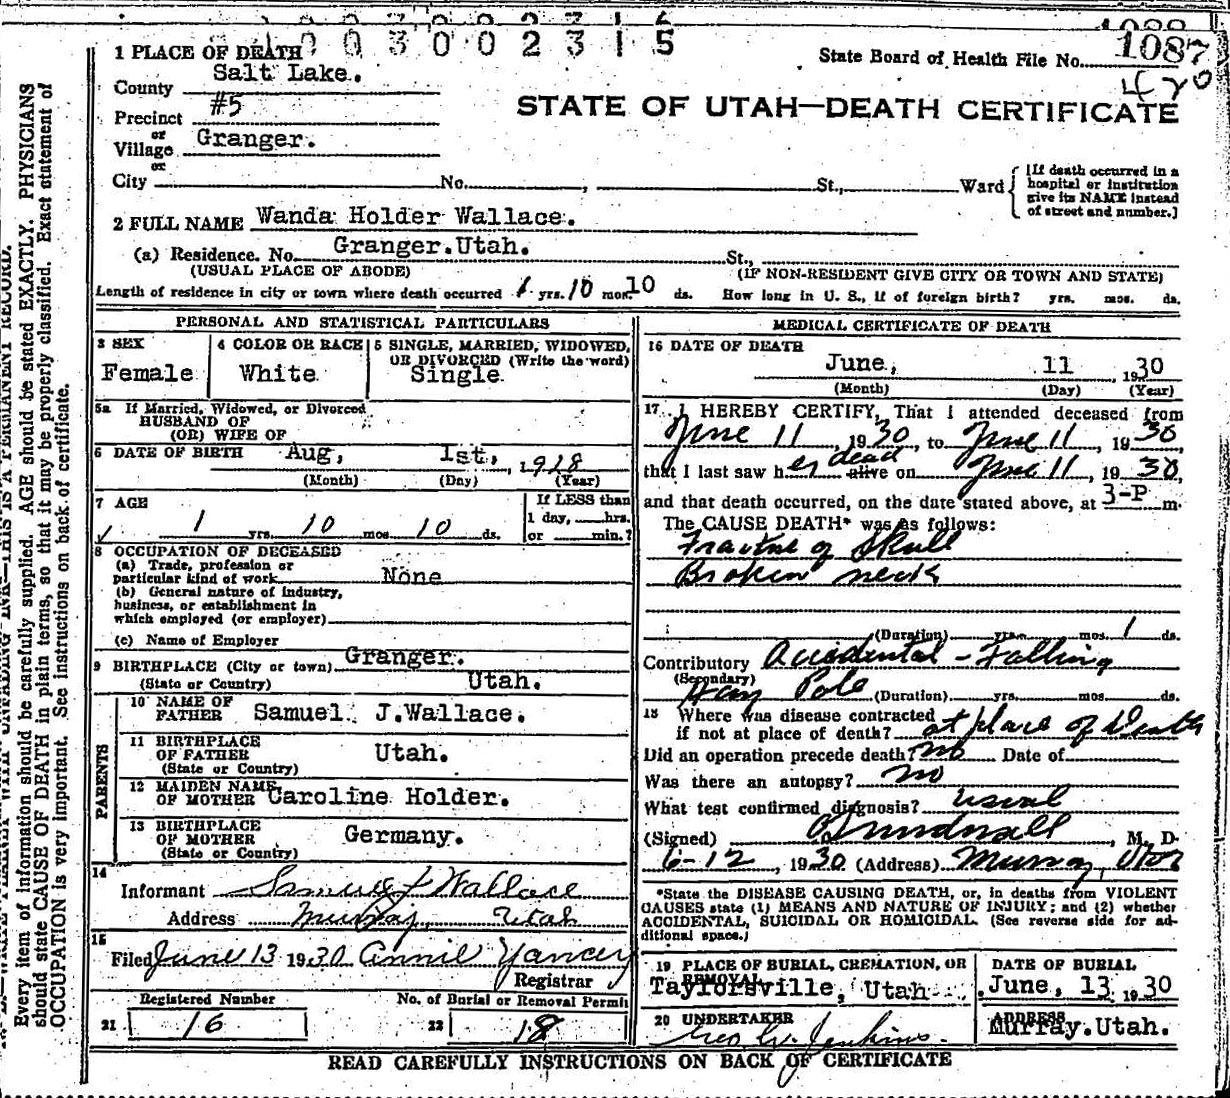 1003002315
1 PLACE OF DEATH
State Board of Health File No. 1087
420
County Salt Lake.
Precinct #5
STATE OF UTAH—DEATH CERTIFICATE
or
Village Granger.
or
City No. , St., Ward
[If death occurred in a
hospital or institution
give its NAME instead
of street and number.]
2 FULL NAME Wanda Holder Wallace.
(a) Residence. No. Granger.Utah. St.,
(USUAL PLACE OF ABODE) (IF NON-RESIDENT GIVE CITY OR TOWN AND STATE)
Length of residence in city or town where death occurred 1 yrs. 10 mos. 10 ds. How long in U. S., if of foreign birth? yrs. mos. ds.
PERSONAL AND STATISTICAL PARTICULARS
3 SEX 4 COLOR OR RACE 5 SINGLE, MARRIED, WIDOWED,
OR DIVORCED (Write the word)
Female White Single
5a If Married, Widowed, or Divorced
HUSBAND OF
(OR) WIFE OF
6 DATE OF BIRTH Aug, 1st, , 1928
(Month) (Day) (Year)
7 AGE
If LESS than
1 day, hrs.
or min.?
1 yrs. 10 mos 10 ds.
8 OCCUPATION OF DECEASED
(a) Trade, profession or
particular kind of work None
(b) General nature of industry,
business, or establishment in
which employed (or employer)
(c) Name of Employer
9 BIRTHPLACE (City or town) Granger.
(State or Country) Utah.
PARENTS
10 NAME OF
FATHER Samuel J.Wallace.
11 BIRTHPLACE
OF FATHER Utah.
(State or Country)
12 MAIDEN NAME
OF MOTHER Caroline Holder.
13 BIRTHPLACE
OF MOTHER Germany.
(State or Country)
14
Informant Samuel J Wallace
Address Murray, Utah
15
Filed June 13 1930 Annie Yancey
Registrar
Registered Number No. of Burial or Removal Permit
21 16 22 18
MEDICAL CERTIFICATE OF DEATH
16 DATE OF DEATH
June, 11 , 1930
(Month) (Day) (Year)
17 I HEREBY CERTIFY, That I attended deceased from
June 11, 1930, to June 11, 1930
that I last saw her dead alive on June 11, 1930,
and that death occurred, on the date stated above, at 3-P m.
The CAUSE DEATH* was as follows:
Fracture of Skull
Broken neck
(Duration) yrs. mos. 1 ds.
Contributory Accidental - Falling
(Secondary)
Hay Pole (Duration) yrs. mos. ds.
18 Where was disease contracted
if not at place of death? at place of Death
Did an operation precede death? no Date of
Was there an autopsy? no
What test confirmed diagnosis? usual
(Signed) , M. D.
6-12, 1930 (Address) Murray, Utah
*State the DISEASE CAUSING DEATH, or, in deaths from VIOLENT
CAUSES state (1) MEANS AND NATURE OF INJURY; and (2) whether
ACCIDENTAL, SUICIDAL OR HOMICIDAL. (See reverse side for ad-
ditional space.)
19 PLACE OF BURIAL, CREMATION, OR
REMOVAL
Taylorsville, Utah
DATE OF BURIAL
June, 13 1930
20 UNDERTAKER
Geo. W. Jenkins.
ADDRESS
Murray.Utah.
READ CAREFULLY INSTRUCTIONS ON BACK OF CERTIFICATE
Every item of information should be carefully supplied. AGE should be stated EXACTLY. PHYSICIANS
should state CAUSE OF DEATH in plain terms, so that it may be properly classified. Exact statement of
OCCUPATION is very important. See instructions on back of certificate.